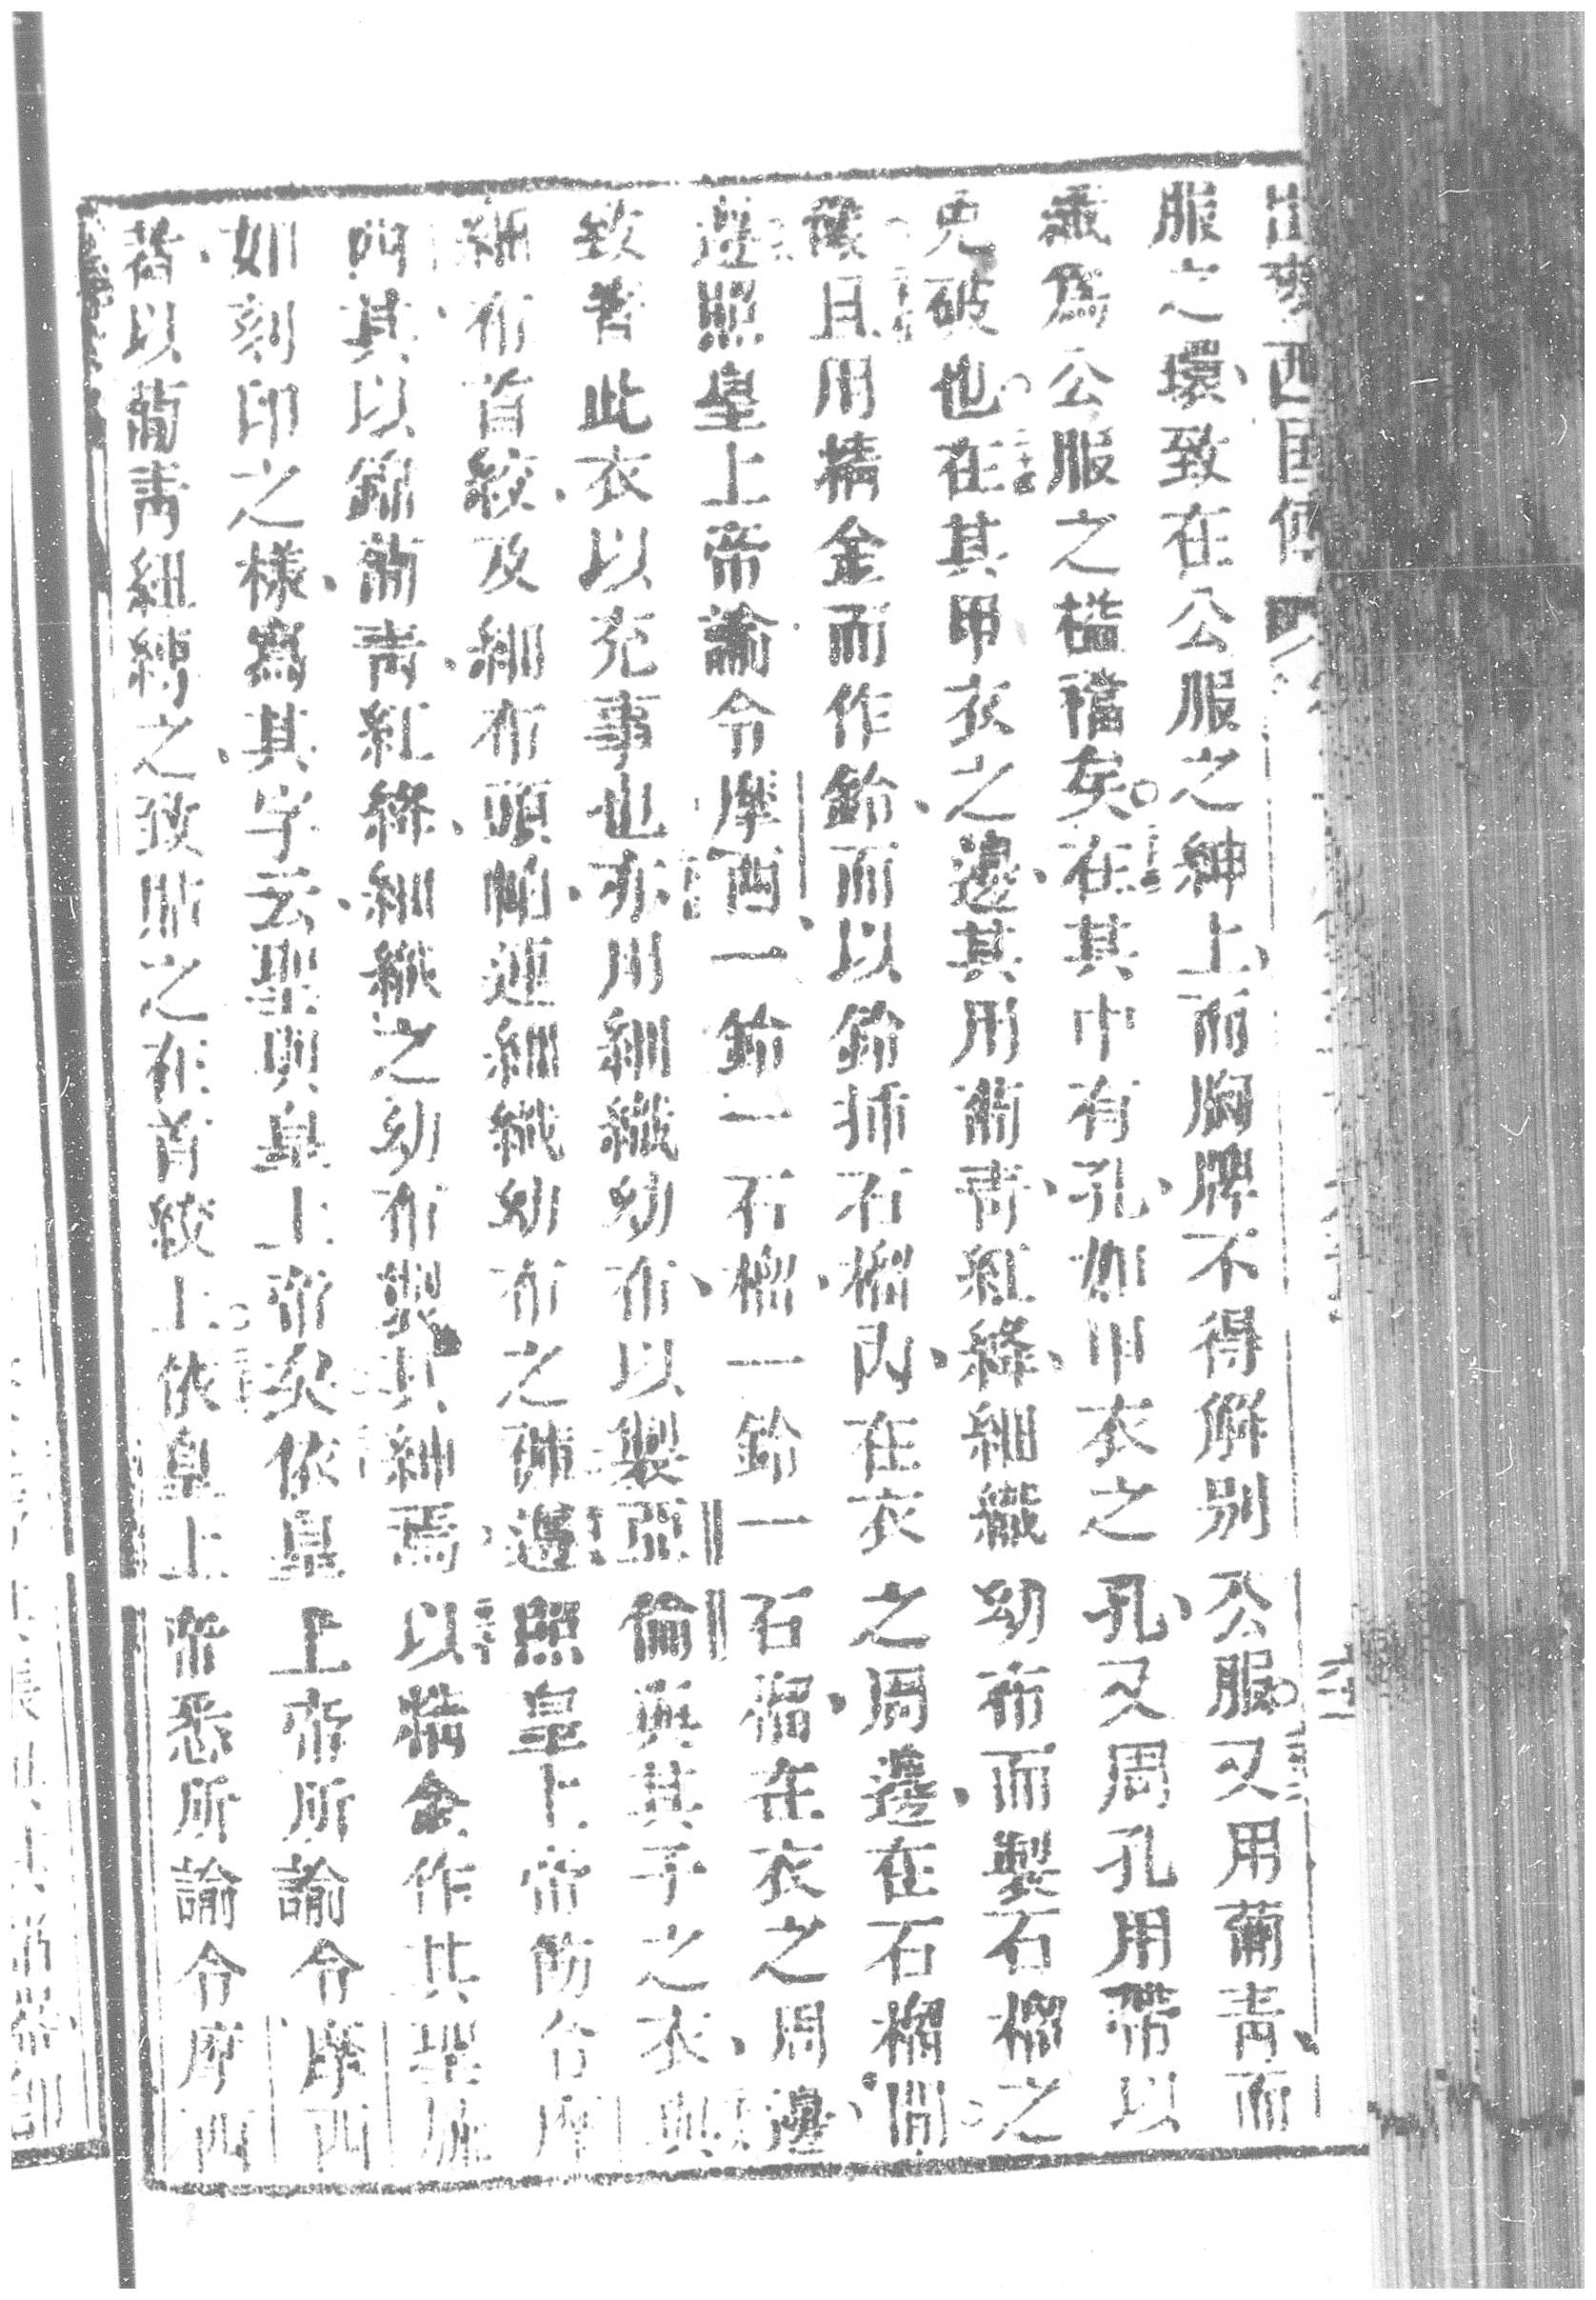 服之環致在公服之紳上而胸牌不得解別公服又用葡青而
織為公服之襤襠矣在其中有孔如甲衣之孔又周孔用帶以
免破也在其甲衣之邊其用葡青紅絳細織幼布而製石榴之
樣且用精金而作鈴而以鈴揷石榴內在衣之周邊在石榴間
遵照皇上帝諭令摩西一鈴一石榴一鈴一石榴在衣之周邊
致著此衣以充事也亦用細織幼布以製亞倫與其子之衣與
細布首絞及細布頭帕連細織幼布之褲遵照皇上帝所令摩
西其以細葡青紅絳細織之幼布製其紳焉以精金作其聖旒
如刻印之樣寫其字云聖與皇上帝矣依皇上帝所諭令摩西
者以葡青紐縛之致貼之在首絞上依皇上帝悉所諭令摩西